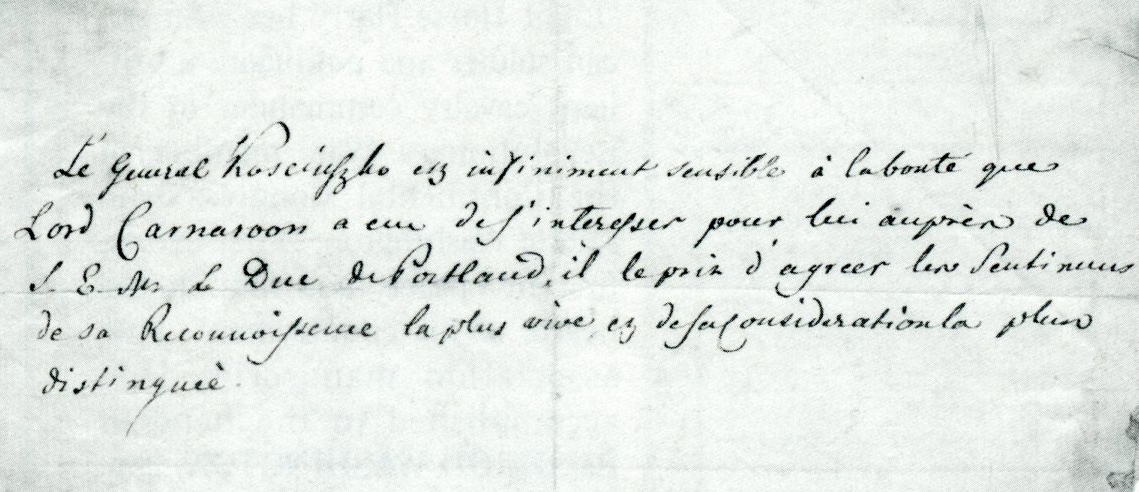 Le General Kosciuszko est infiniment sensible à la bonté que
Lord Carnarvon a eue de s'interesser pour lui auprès de
S. E. Mr Le Duc de Portland, il le prie d'agreer les Sentimens
de sa Reconnoissence la plus vive et de sa Consideration la plus
distinguée.